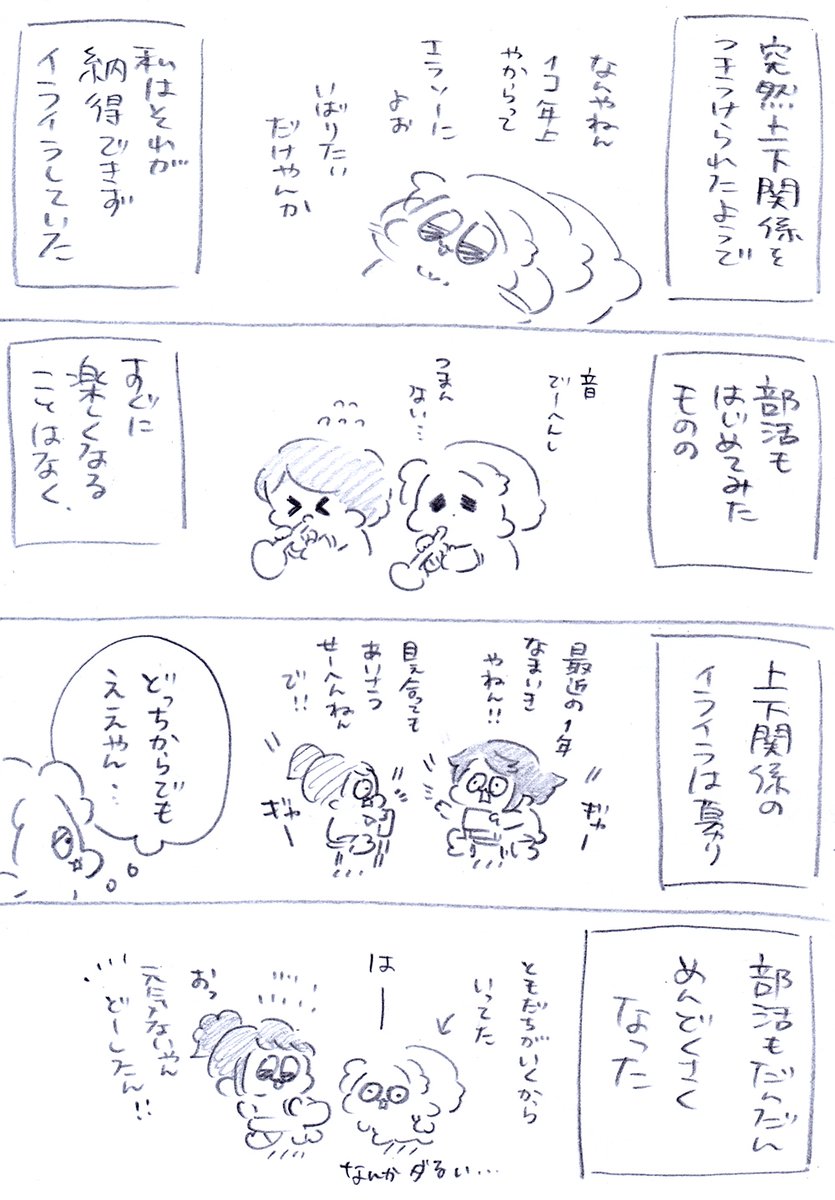 突然上下関係を
つきつけられたようで
なんやねん
1コ年上
やからって
エラソーに
よお
いばりたい
だけやんか
私はそれが
納得できず
イライライラしていた
部活も
はじめてみた
ものの
音
でーへんし
つまん
ない…
すぐに
楽しくなる
ことはなく、
上下関係の
イライラは募り
最近の1年
なまいき
やねん!!
目え合っても
あいさつ
せーへんねん
で!!
ギャー
ギャー
どっちからでも
ええやん…
部活もだんだん
めんどくさく
なった
ともだちがいくから
いってた
はー
なんかダるい…
おっ
元気ないやん
どーしたん!!